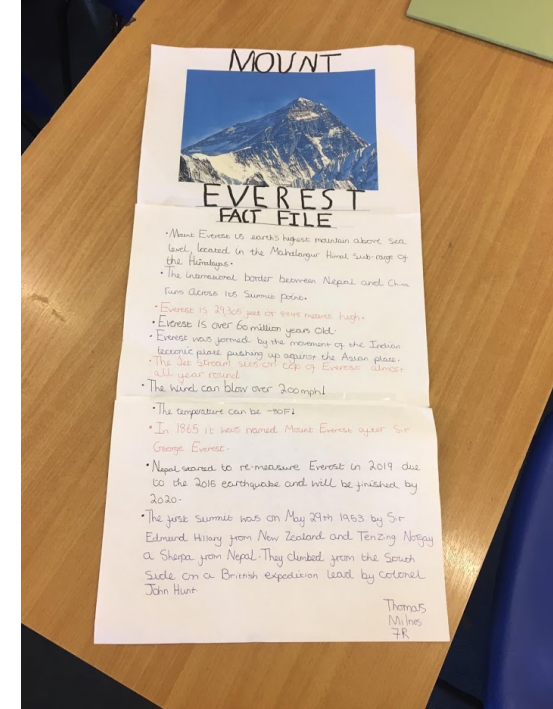 MOUNT
EVEREST
FACT FILE
• Mount Everest is earth's highest mountain above sea
level, located in the Mahalangur Himal sub-range of
the Himalayas.
• The international border between Nepal and China
runs across its summit point.
• Everest is 29,305 feet or metres high.
• Everest is over 60 million years old.
• Everest was formed by the movement of the Indian
tectonic plate pushing up against the Asian plate.
• The Jet Stream sits on top of Everest almost
all year round
• The wind can blow over 200mph!
• The temperature can be -80F!
• In 1865 it was named Mount Everest after Sir
George Everest.
• Nepal started to re-measure Everest in 2019 due
to the 2015 earthquake and will be finished by
2020.
• The first summit was on May 29th 1953 by Sir
Edmund Hillary from New Zealand and Tenzing Norgay
a Sherpa from Nepal. They climbed from the South
Side on a British expedition lead by colonel
John Hunt
Thomas
Milnes
7R